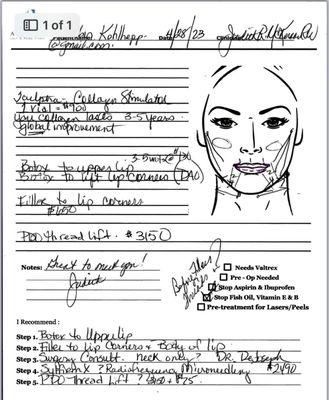 1 of 1
Kohlhepp Date 4/28/23 Consult
@gmail.com
Sculptra - Collagen Stimulator
1 vial = $900
you collagen lasts 3-5 years.
global improvement
Botox to upper lip
Botox to lift lip corners (DAO)
Filler to lip corners
$650
PDO thread lift. $3150
Notes: Great to meet you!
Judith
Needs Valtrex
Pre - Op Needed
Stop Aspirin & Ibuprofen
Stop Fish Oil, Vitamin E & B
Pre-treatment for Lasers/Peels
I Recommend :
Step 1. Botox to Upper lip
Step 2. Filler to Lip Corners & Body of lip
Step 3. Surgery Consult. Neck only? DR.
Step 4. Radiofrequency Microneedling $2490
Step 5. PDO Thread Lift ?